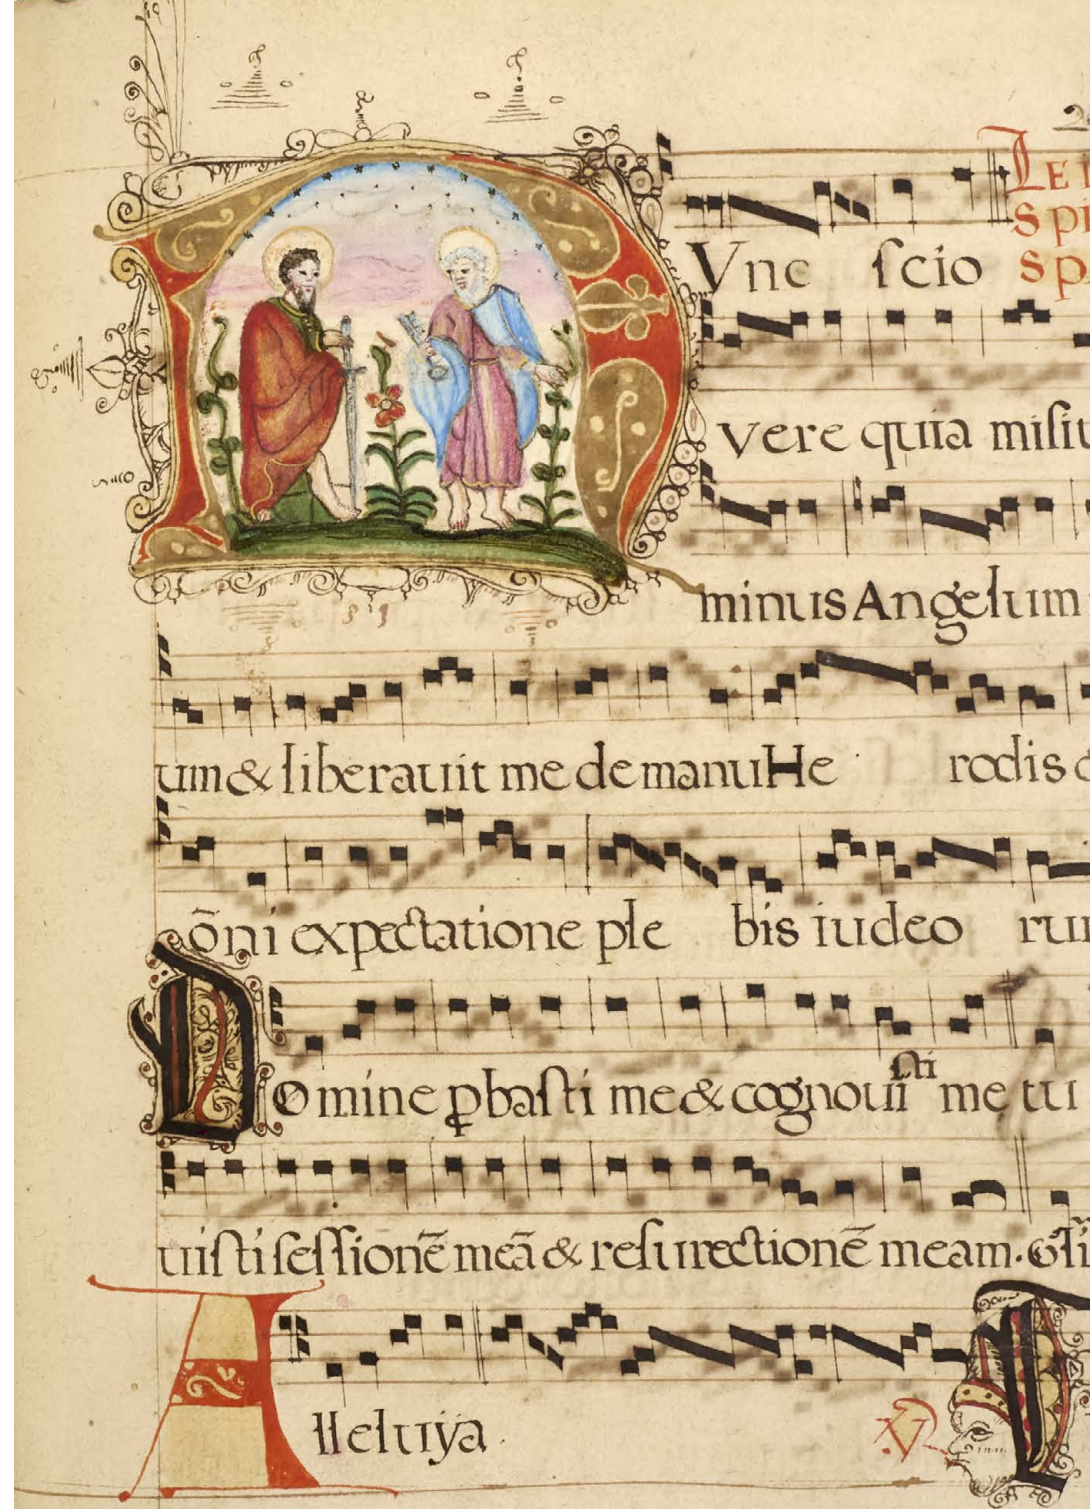 NVnc scio
vere quia misit
minus Angelum
um & liberauit me de manu He rodis
om̄i expectatione ple bis iudeo rum
DOmine ꝓbasti me & cognouisti me tu
uisti sessionē meā & resurrectionē meam.
Alleluÿa.
℣